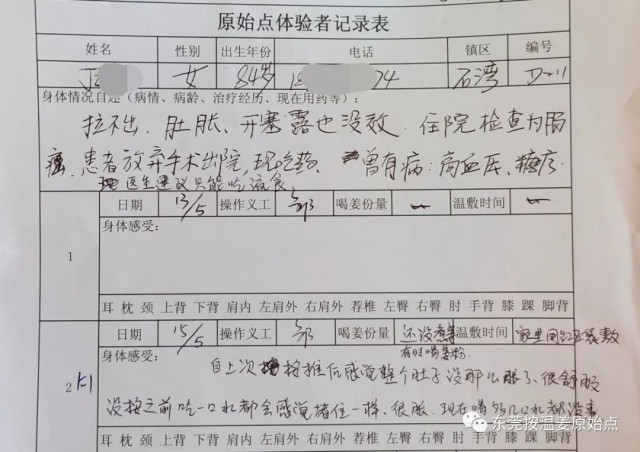 原始点体验者记录表
姓名 性别 出生年份 电话 镇区 编号
女 84岁 74 石湾
身体情况自述（病情、病龄、治疗经历、现在用药等）：
拉不出、肚胀、开塞露也没效. 住院检查为肠
癌. 患者放弃手术出院, 现吃药. 曾有病: 高血压、糖尿.
医生建议只能吃流食
日期 13/5 操作义工 喝姜份量 温敷时间
1
身体感受：
耳 枕 颈 上背 下背 肩内 左肩外 右肩外 荐椎 左臀 右臀 肘 手背 膝 踝 脚背
日期 15/5 操作义工 喝姜份量 还没煮 温敷时间 家里用红豆袋敷
有时喝姜粉
2
身体感受：
自上次按推后感觉整个肚子没那么胀了、很舒服
没按之前吃一口水都会感觉堵住一样、很胀、现在喝几口水都没事
耳 枕 颈 上背 下背 肩内 左肩外 右肩外 荐椎 左臀 右臀 肘 手背 膝 踝 脚背
东莞按温姜原始点